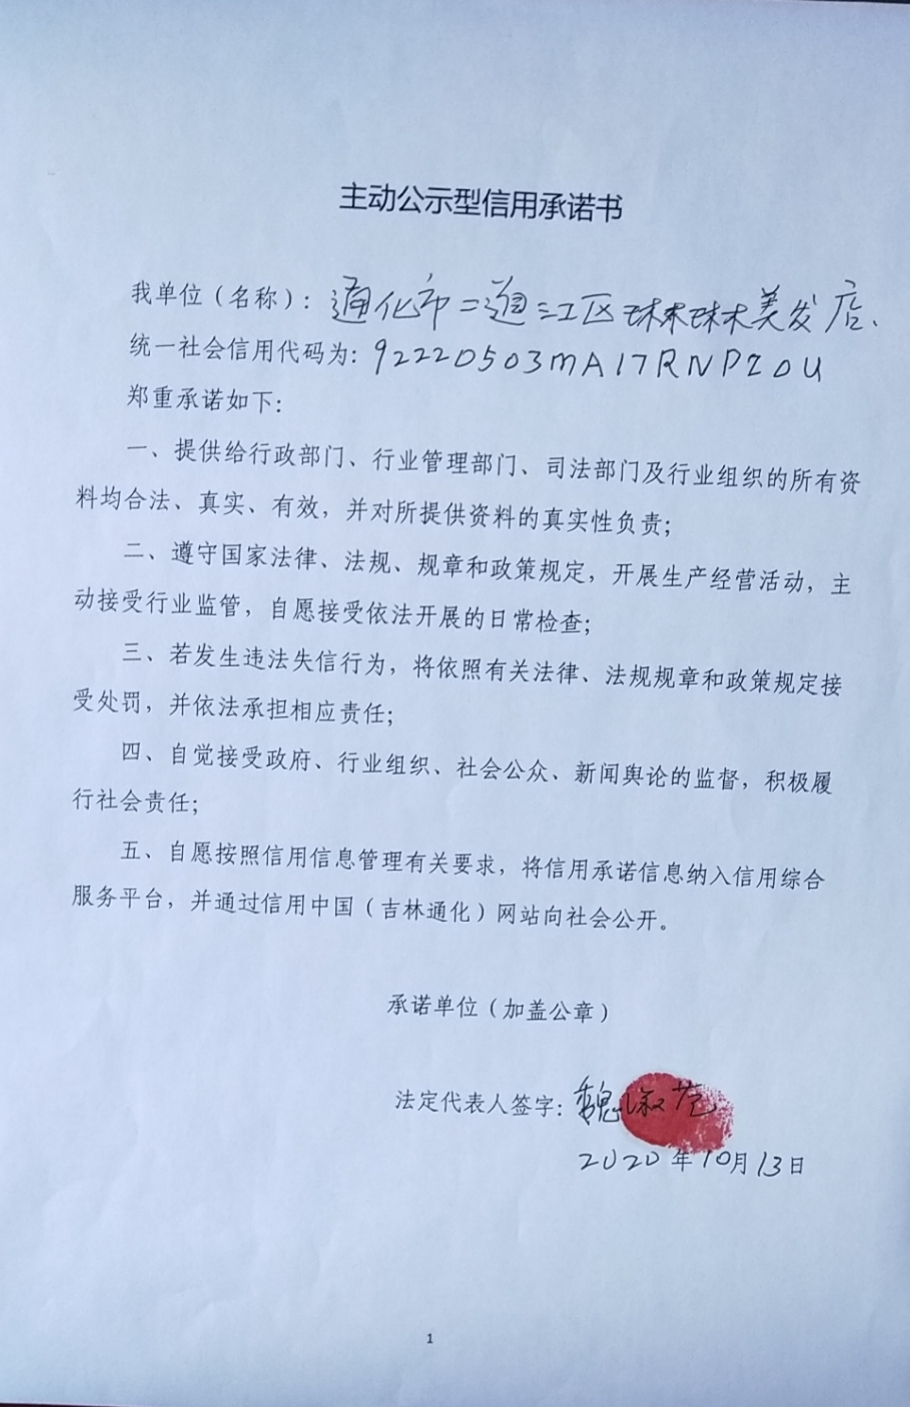 主动公示型信用承诺书
我单位（名称）：通化市二道江区琳琳美发店.
统一社会信用代码为：92220503MA17RNPZ0U
郑重承诺如下：
一、提供给行政部门、行业管理部门、司法部门及行业组织的所有资
料均合法、真实、有效，并对所提供资料的真实性负责；
二、遵守国家法律、法规、规章和政策规定，开展生产经营活动，主
动接受行业监管，自愿接受依法开展的日常检查；
三、若发生违法失信行为，将依照有关法律、法规规章和政策规定接
受处罚，并依法承担相应责任；
四、自觉接受政府、行业组织、社会公众、新闻舆论的监督，积极履
行社会责任；
五、自愿按照信用信息管理有关要求，将信用承诺信息纳入信用综合
服务平台，并通过信用中国（吉林通化）网站向社会公开。
承诺单位（加盖公章）
法定代表人签字：魏淑
2020年10月13日
1